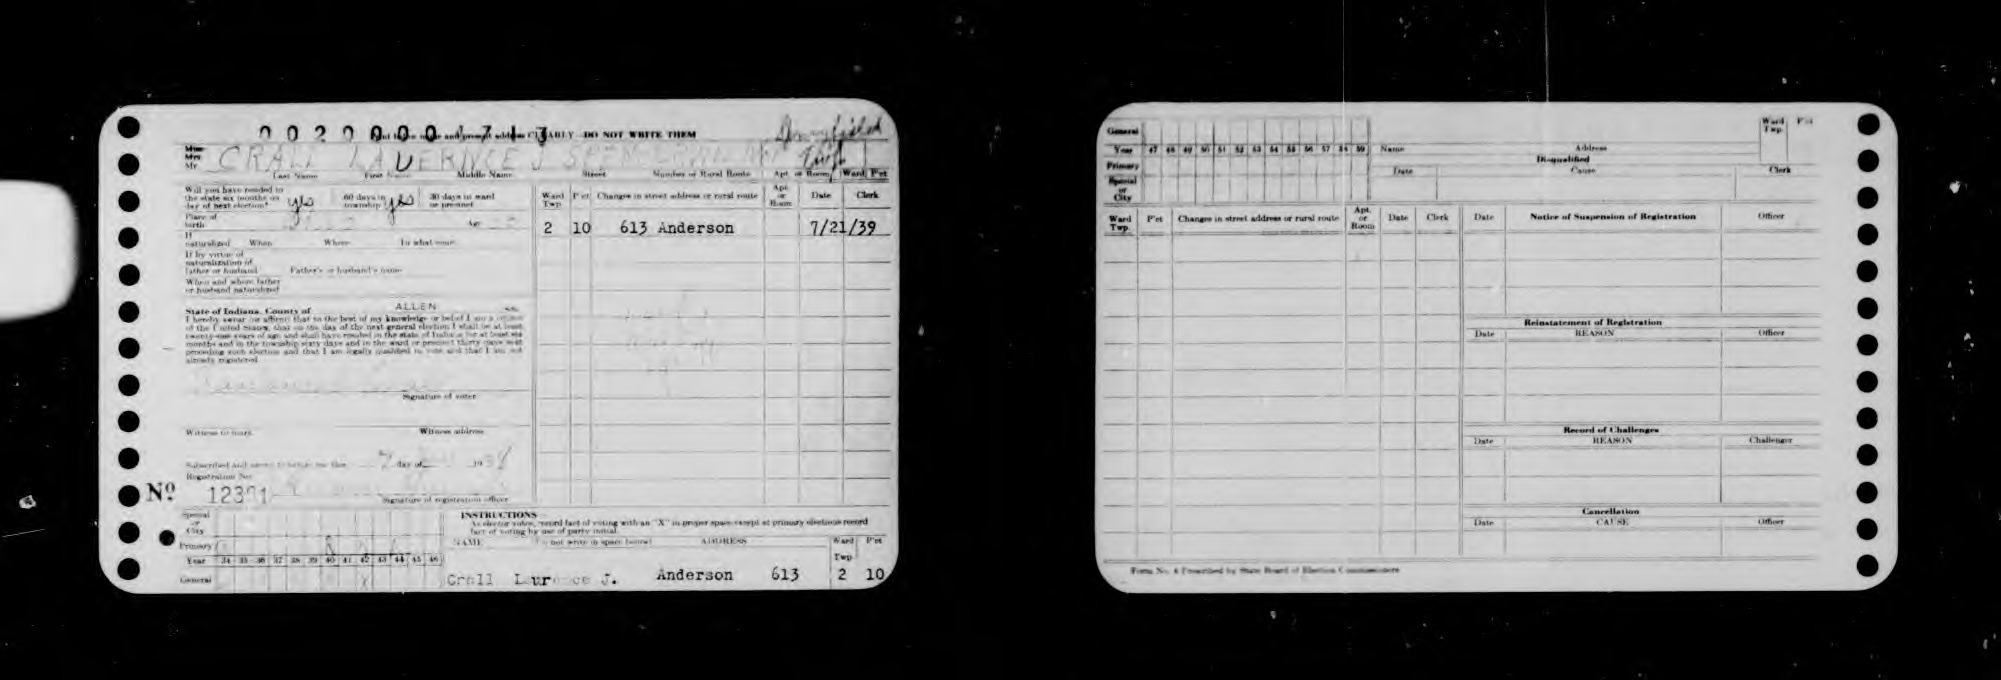 0020000 1713
CLEARLY—DO NOT WRITE THEM
Miss
Mrs.
Mr. CRALL LAVERNCE J
Last Name First Name Middle Name Street Number or Rural Route Apt. or Room Ward P'ct
Will you have resided in the state six months on day of next election? yes 60 days in township yes 30 days in ward or precinct
Place of birth Age
If naturalized When Where In what court
If by virtue of naturalization of father or husband Father's or husband's name
When and where father or husband naturalized
State of Indiana, County of ALLEN ss:
I hereby swear (or affirm) that to the best of my knowledge or belief I am a citizen
of the United States, that on the day of the next general election I shall be at least
twenty-one years of age and shall have resided in the state of Indiana for at least six
months and in the township sixty days and in the ward or precinct thirty days next
preceding such election and that I am legally qualified to vote and that I am not
already registered.
Signature of voter
Witness to mark Witness address
Subscribed and sworn to before me this 7 day of 1938
Registration No.
Nº 12371
Signature of registration officer
Ward Twp. P'ct Changes in street address or rural route Apt. or Room Date Clerk
2 10 613 Anderson 7/21/39
Special or City
Primary
Year 34 35 36 37 38 39 40 41 42 43 44 45 46
General
INSTRUCTIONS
As elector votes, record fact of voting with an "X" in proper space except at primary elections record
fact of voting by use of party initial.
NAME (Do not write in space below) ADDRESS Ward Twp P'ct
Crall Laurence J. Anderson 613 2 10
General
Year 47 48 49 50 51 52 53 54 55 56 57 58 59 Name Address Ward Twp. P'ct
Primary
Special or City
Disqualified
Date Cause Clerk
Ward Twp. P'ct Changes in street address or rural route Apt. or Room Date Clerk
Date Notice of Suspension of Registration Officer
Reinstatement of Registration
Date REASON Officer
Record of Challenges
Date REASON Challenger
Cancellation
Date CAUSE Officer
Form No. 4 Prescribed by State Board of Election Commissioners